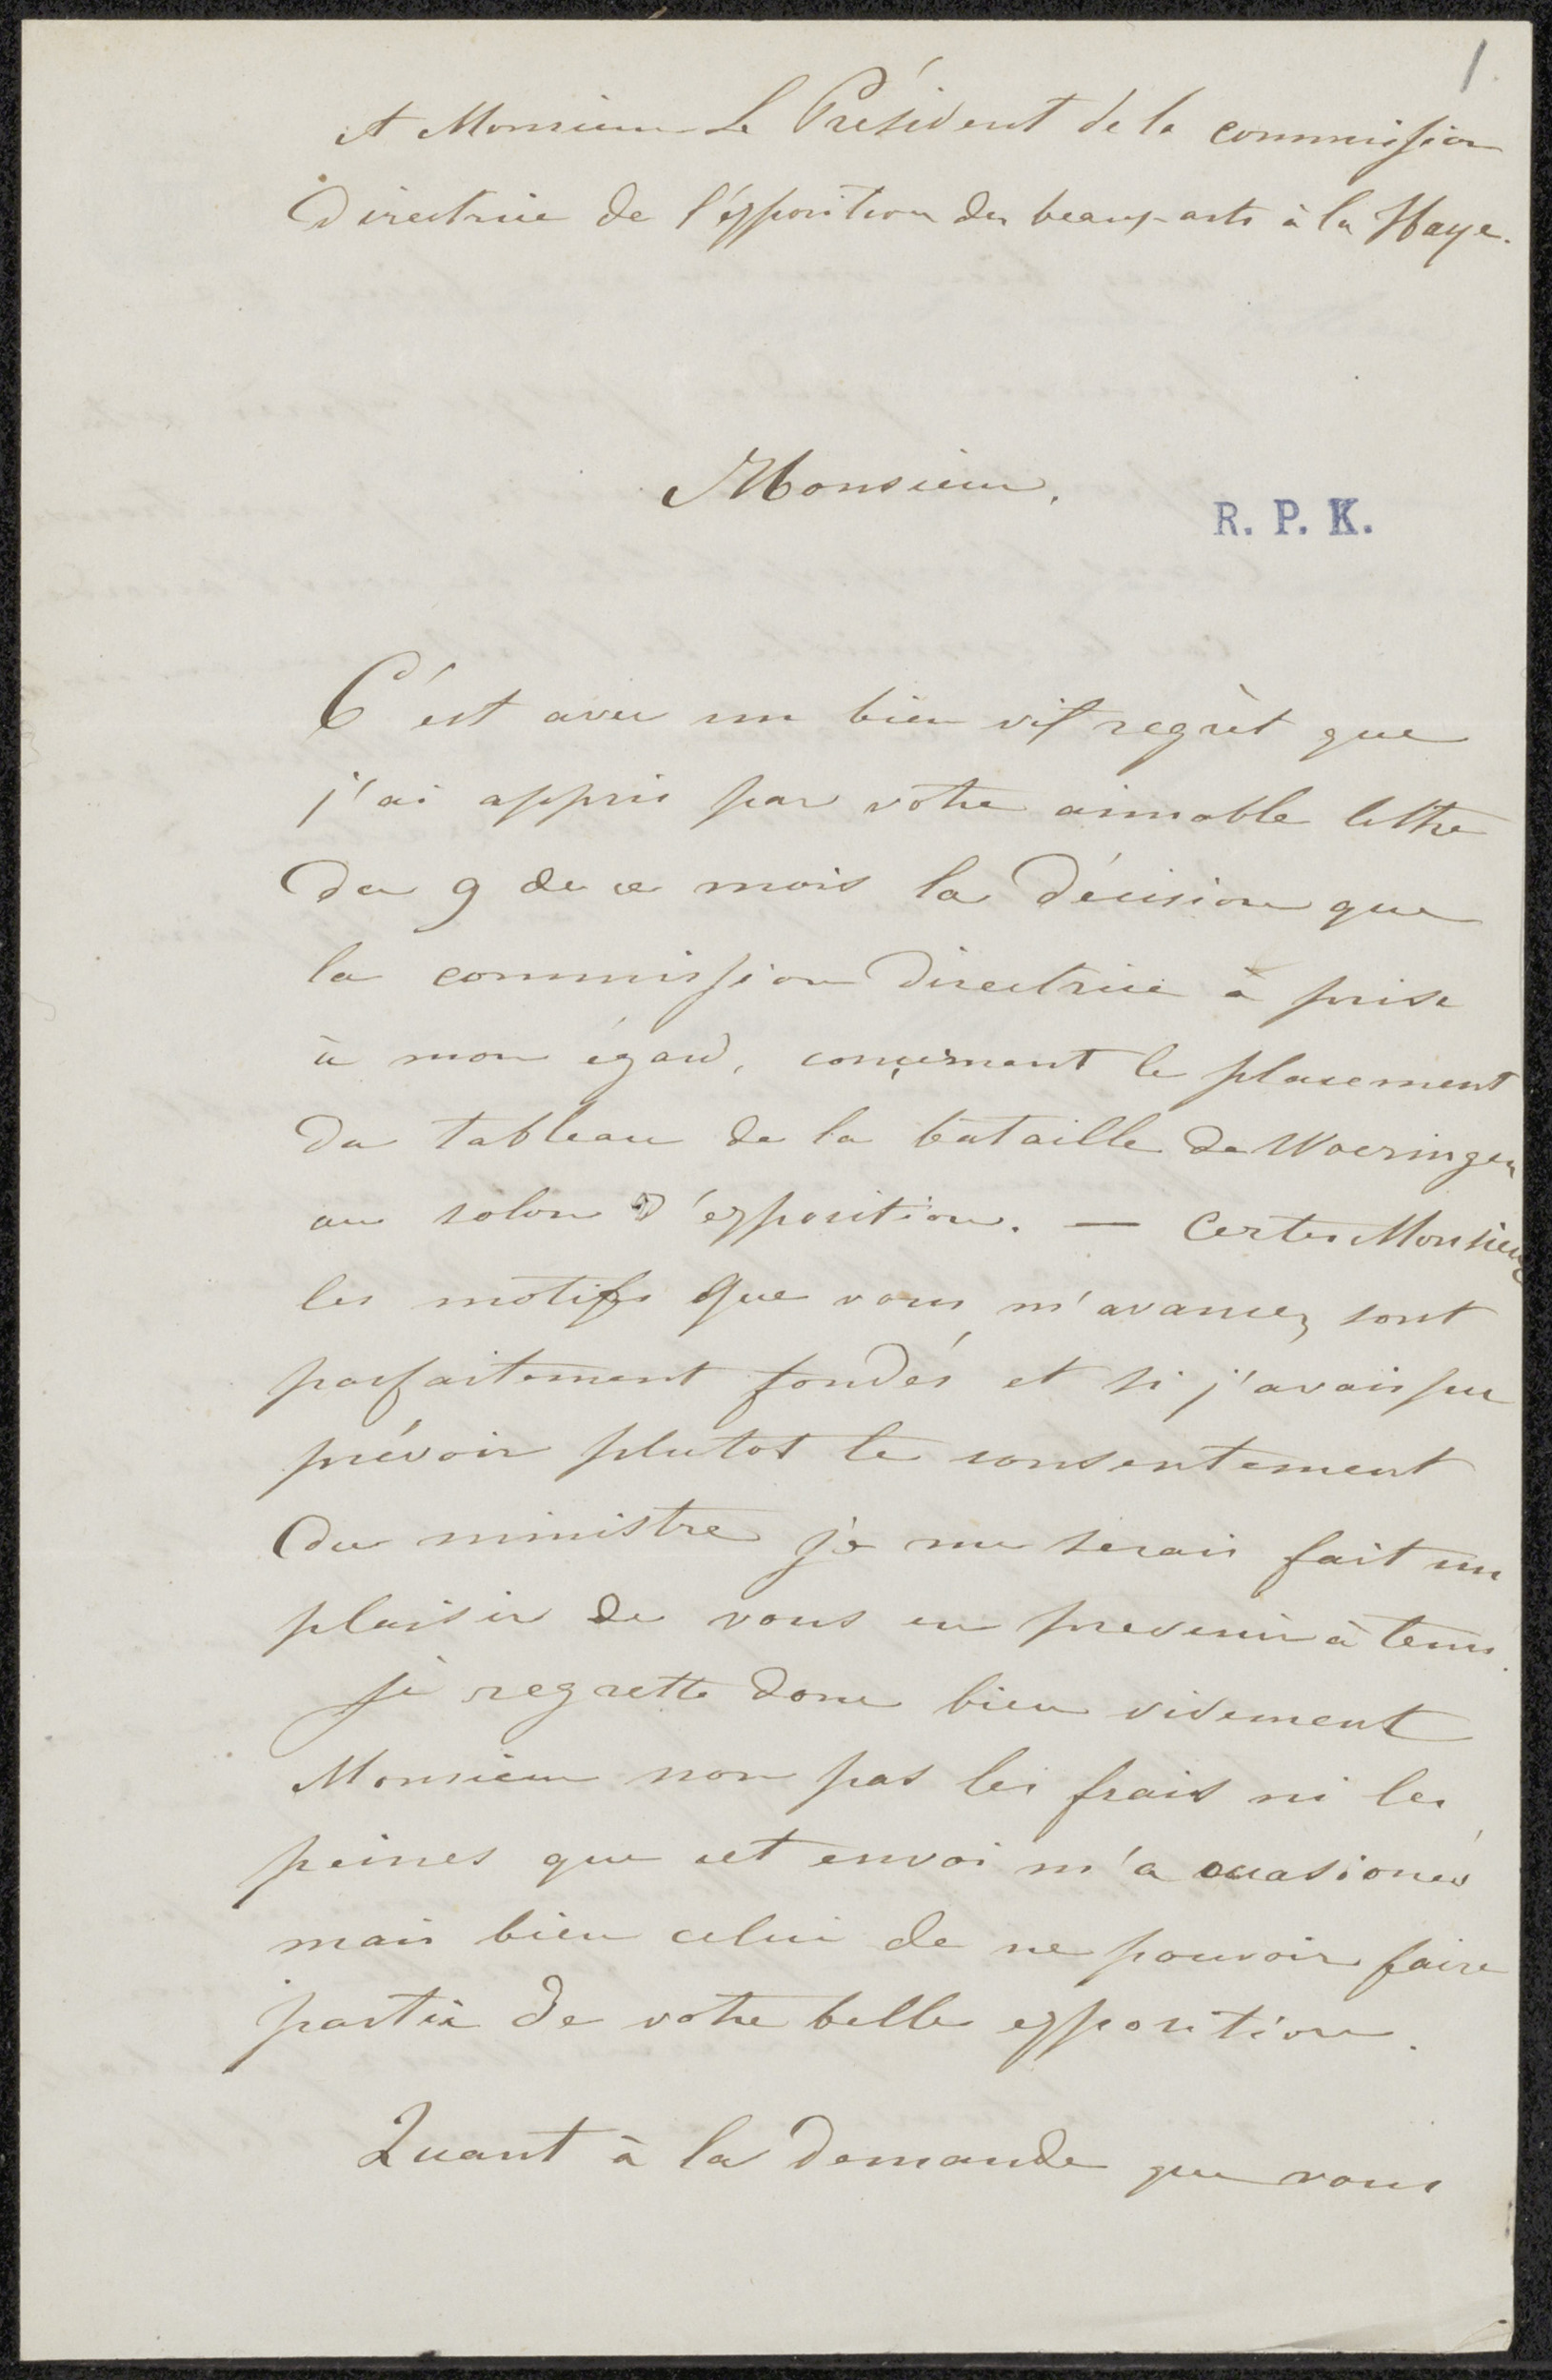 1.
A Monsieur Le Président de la commission
Directrice de l'éxposition des beaux-arts à la Haye.
Monsieur,
R. P. K.
C'est avec un bien vif regrèt que
j'ai appris par votre aimable lettre
du 9 de ce mois la décision que
la commission Directrice à prise
à mon égard, conçernant le placement
du tableau de la bataille de Woeringen
au salon d'exposition. — Certes Monsieur
les motifs que vous m'avancez sont
parfaitement fondés et si j'avais pu
prévoir plutot le consentement
du ministre je me serais fait un
plaisir de vous en prevenir à tems.
je regrette donc bien vivement
Monsieur non pas les frais ni les
peines que cet envoi m'a occasionés
mais bien celui de ne pouvoir faire
partie de votre belle exposition.
Quant à la demande que vous